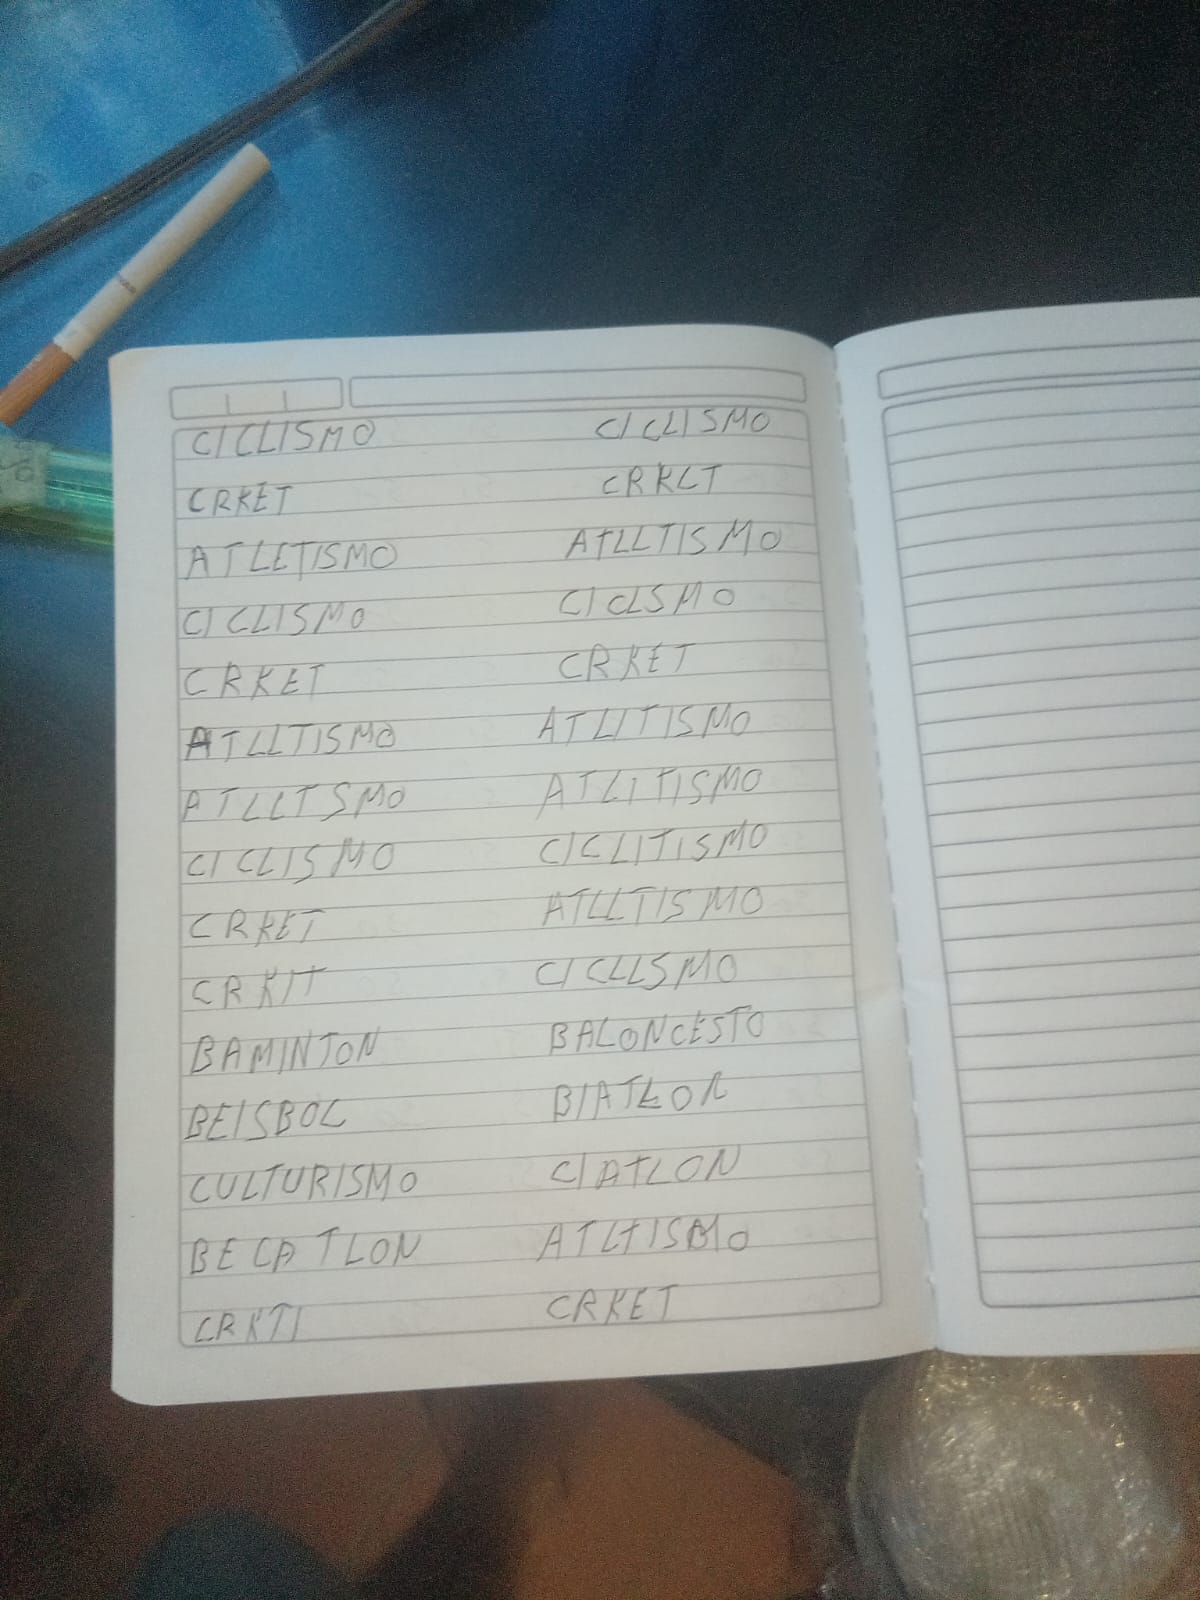 CICLISMO CICLISMO
CRKET CRKLT
ATLETISMO ATLLTISMO
CICLISMO CICLSMO
CRKET CRKET
ATLLTISMO ATLITISMO
ATLLTSMO ATLITISMO
CICLISMO CICLITISMO
CRKET ATLLTISMO
CRKIT CICLLSMO
BAMINTON BALONCESTO
BEISBOL BIATLON
CULTURISMO CIATLON
BECATLON
CRKTI CRKET